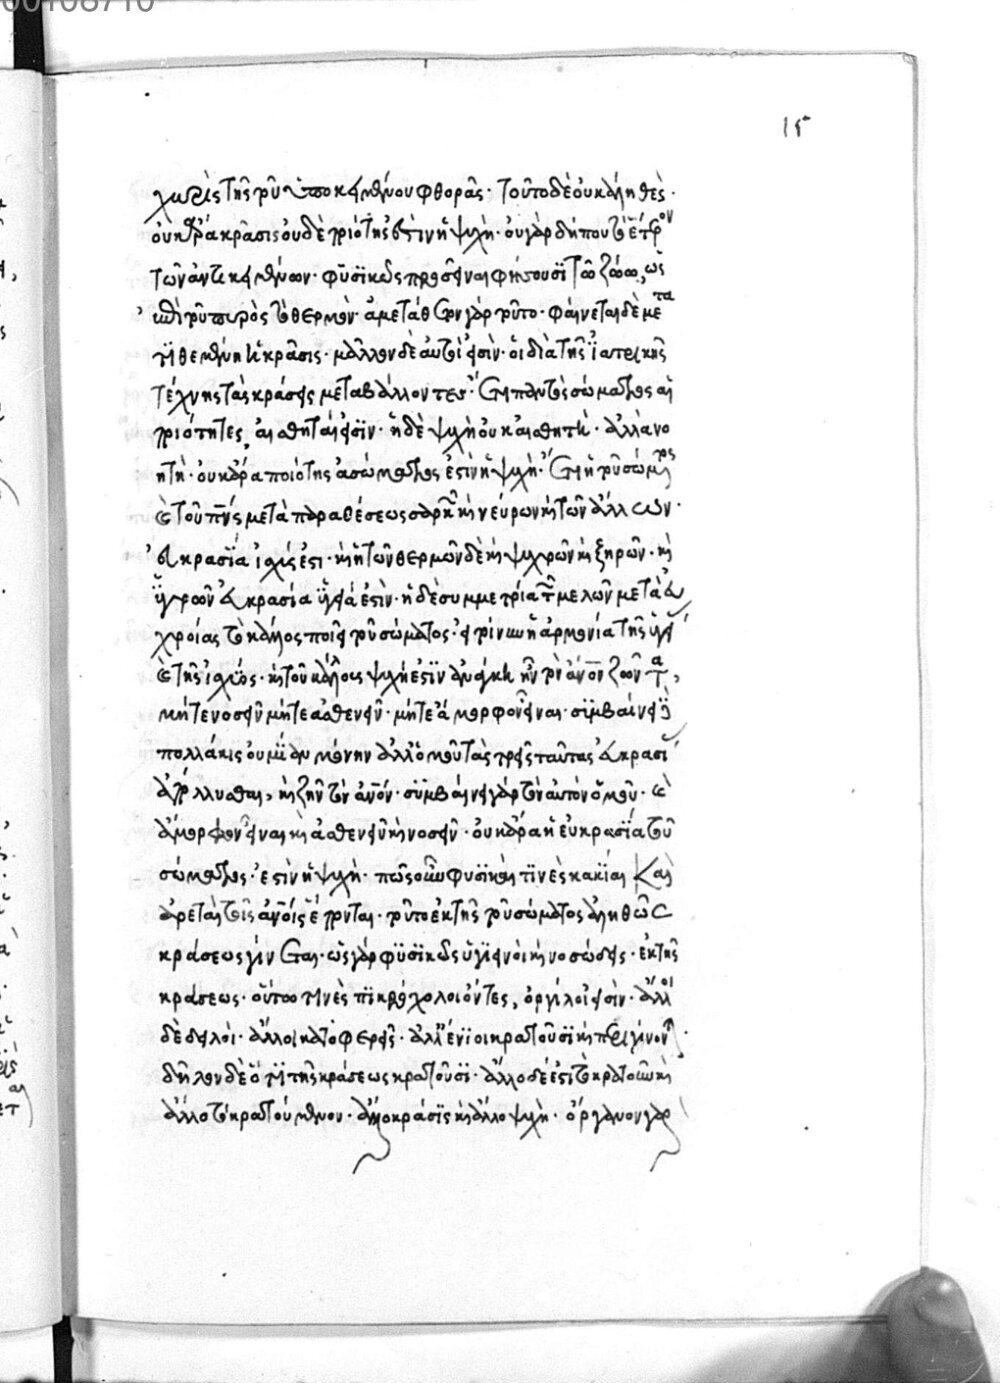 00108710
15
χωρὶς τῆς τοῦ ὑποκειμένου φθορᾶς· τοῦτο δὲ οὐκ ἀληθὲς·
οὐκ ἄρα κρᾶσις οὐδὲ ποιότης ἐστὶν ἡ ψυχή· οὐ γὰρ δήπου τὸ ἕτερον
τῶν ἀντικειμένων· φυσικῶς προσεῖναι φήσουσι τῶ ζώω, ὡς
ἐπὶ τοῦ πυρὸς τὸ θερμὸν· ἀμετάθετον γὰρ τοῦτο· φαίνεται δὲ μετα
τιθεμένη ἡ κρᾶσις· μᾶλλον δὲ αὐτοί εἰσιν· οἱ διὰ τῆς ἰατρικῆς
τέχνης τὰς κράσεις μεταβάλλοντες· ἔτι παντὸς σώματος αἱ
ποιότητες, αἰσθηταί εἰσιν· ἡ δὲ ψυχὴ οὐκ αἰσθητὴ· ἀλλὰ νο
ητή· οὐκ ἄρα ποιότης σώματος ἐστὶν ἡ ψυχή· ἔτι ἡ τοῦ αἵματος
καὶ τοῦ πνεύματος μετὰ παραθέσεως σαρκῶν καὶ νεύρων καὶ τῶν ἄλλων·
εὐκρασία ἰσχύς ἐστι· καὶ ἡ τῶν θερμῶν δὲ καὶ ψυχρῶν καὶ ξηρῶν· καὶ
ὑγρῶν εὐκρασία ὑγεία ἐστὶν· ἡ δὲ συμμετρία τῶν μελῶν μετὰ εὐ
χροίας τὸ κάλλος ποιεῖ τοῦ σώματος· εἰ τοίνυν ἡ ἁρμονία τῆς ὑγείας
καὶ τῆς ἰσχύος· καὶ τοῦ κάλλους ψυχή ἐστιν ἀνάγκη ἦν τὸν ἄνθρωπον ζῶντα,
μήτε νοσεῖν μήτε ἀσθενεῖν· μήτε ἄμορφον εἶναι· συμβαίνει δὲ
πολλάκις οὐ μίαν μόνην ἀλλ' ὁμοῦ τὰς τρεῖς ταύτας εὐκρασίας
ἀπόλλυσθαι, καὶ ζῆν τὸν ἄνθρωπον· συμβαίνει γὰρ τὸν αὐτὸν ὁμοῦ· καὶ
ἄμορφον εἶναι καὶ ἀσθενεῖν καὶ νοσεῖν· οὐκ ἄρα ἡ εὐκρασία τοῦ
σώματος· ἐστὶν ἡ ψυχή· πῶς οὖν φυσικαί τινὲς κακίαι καὶ
ἀρεταὶ τοῖς ἀνθρώποις ἕπονται· τοῦτο ἐκ τῆς τοῦ σώματος ἀληθῶς
κράσεως γίνεται· ὡς γὰρ φυσικῶς ὑγιεινοὶ καὶ νοσώδεις· ἐκ τῆς
κράσεως· οὕτω τινὲς πικρόχολοι ὄντες, ὀργίλοι εἰσὶν· ἄλλοι
δὲ δειλοὶ· ἄλλοι κατοφερεῖς· ἀλλ' ἔνιοι κρατοῦσι καὶ περιγίνονται·
δῆλον δὲ ὅτι τῆς κράσεως κρατοῦσι· ἄλλο δέ ἐστι τὸ κρατοῦν καὶ
ἄλλο τὸ κρατούμενον· ἄλλο κρᾶσις καὶ ἄλλο ψυχή· ὄργανον γὰρ